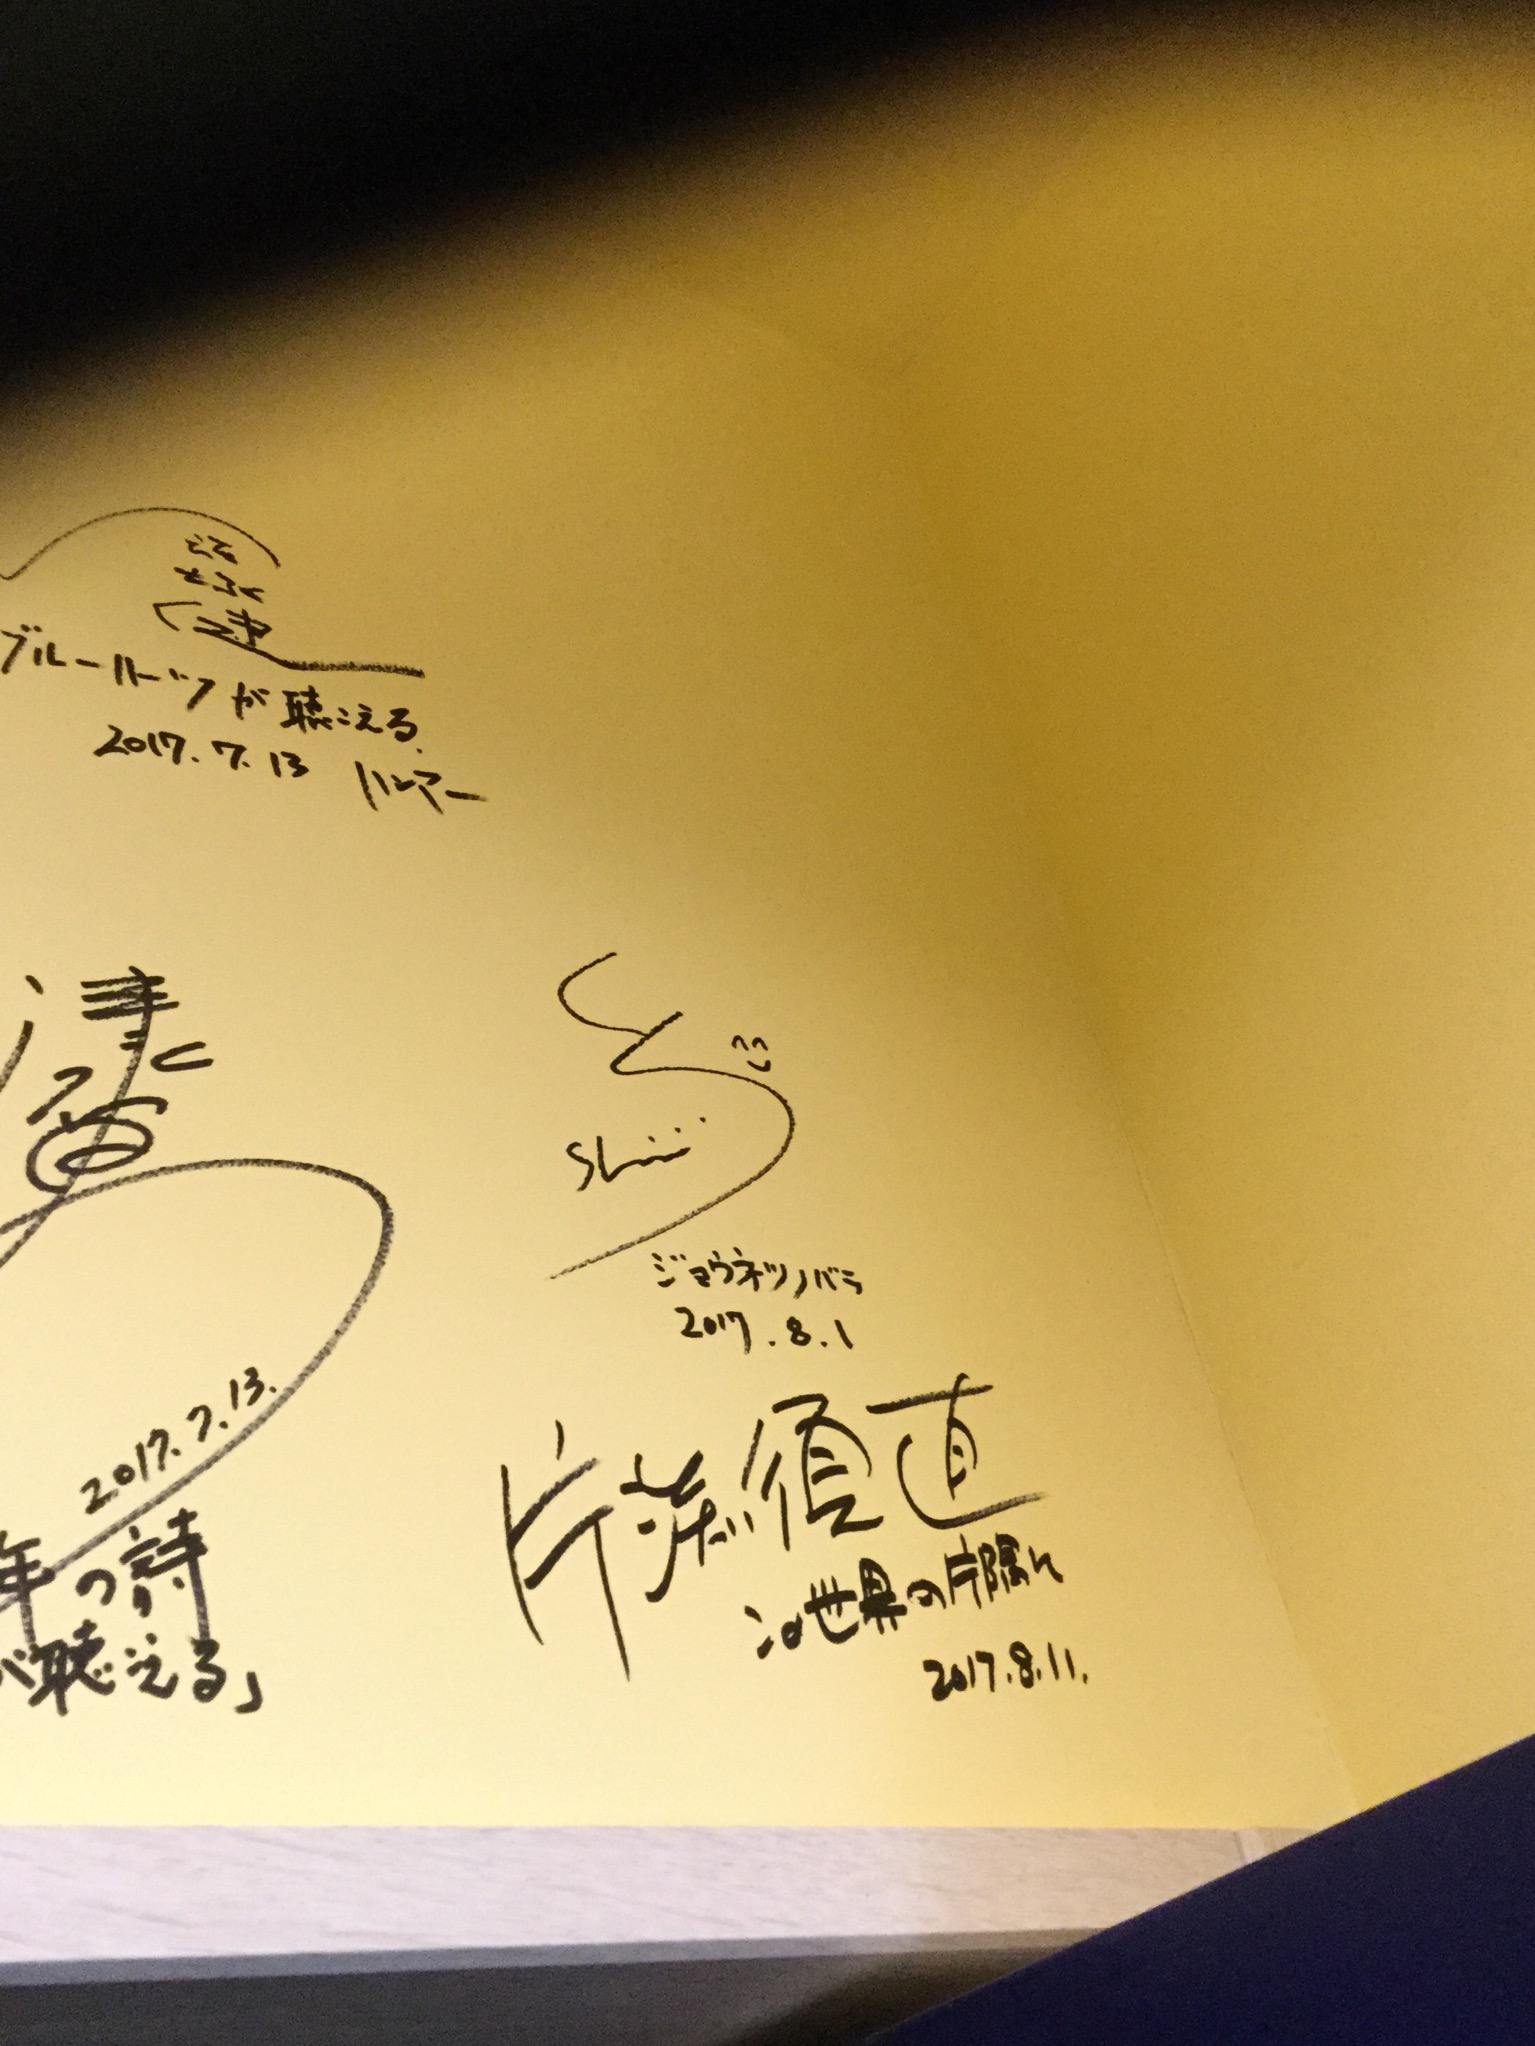 ブルーハーツが聴こえる
2017.7.13 ハンマー
2017.7.13.
年の詩
が聴こえる」
Shiii
ジョウネツノバラ
2017.8.1
片渕須直
この世界の片隅に
2017.8.11.